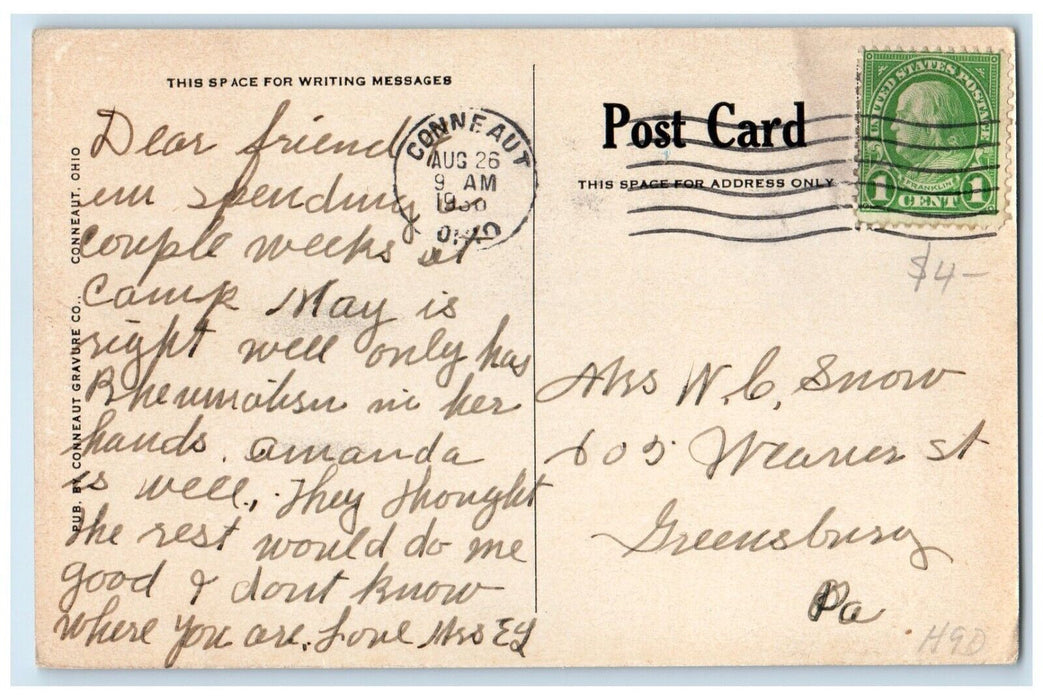 THIS SPACE FOR WRITING MESSAGES
Dear friend
em spending
couple weeks at
Camp May is
right well only has
Rheumatism in her
hands. Amanda
is well, They thought
the rest would do me
good & dont know
where you are. Love Mrs
PUB. BY CONNEAUT GRAVURE CO., CONNEAUT, OHIO
CONNEAUT
AUG 26
9 AM
OHIO
Post Card
THIS SPACE FOR ADDRESS ONLY
UNITED STATES POSTAGE
FRANKLIN
1 CENT 1
$4-
Mrs W. C. Snow
605 Weaver St
Greensburg
Pa
H90